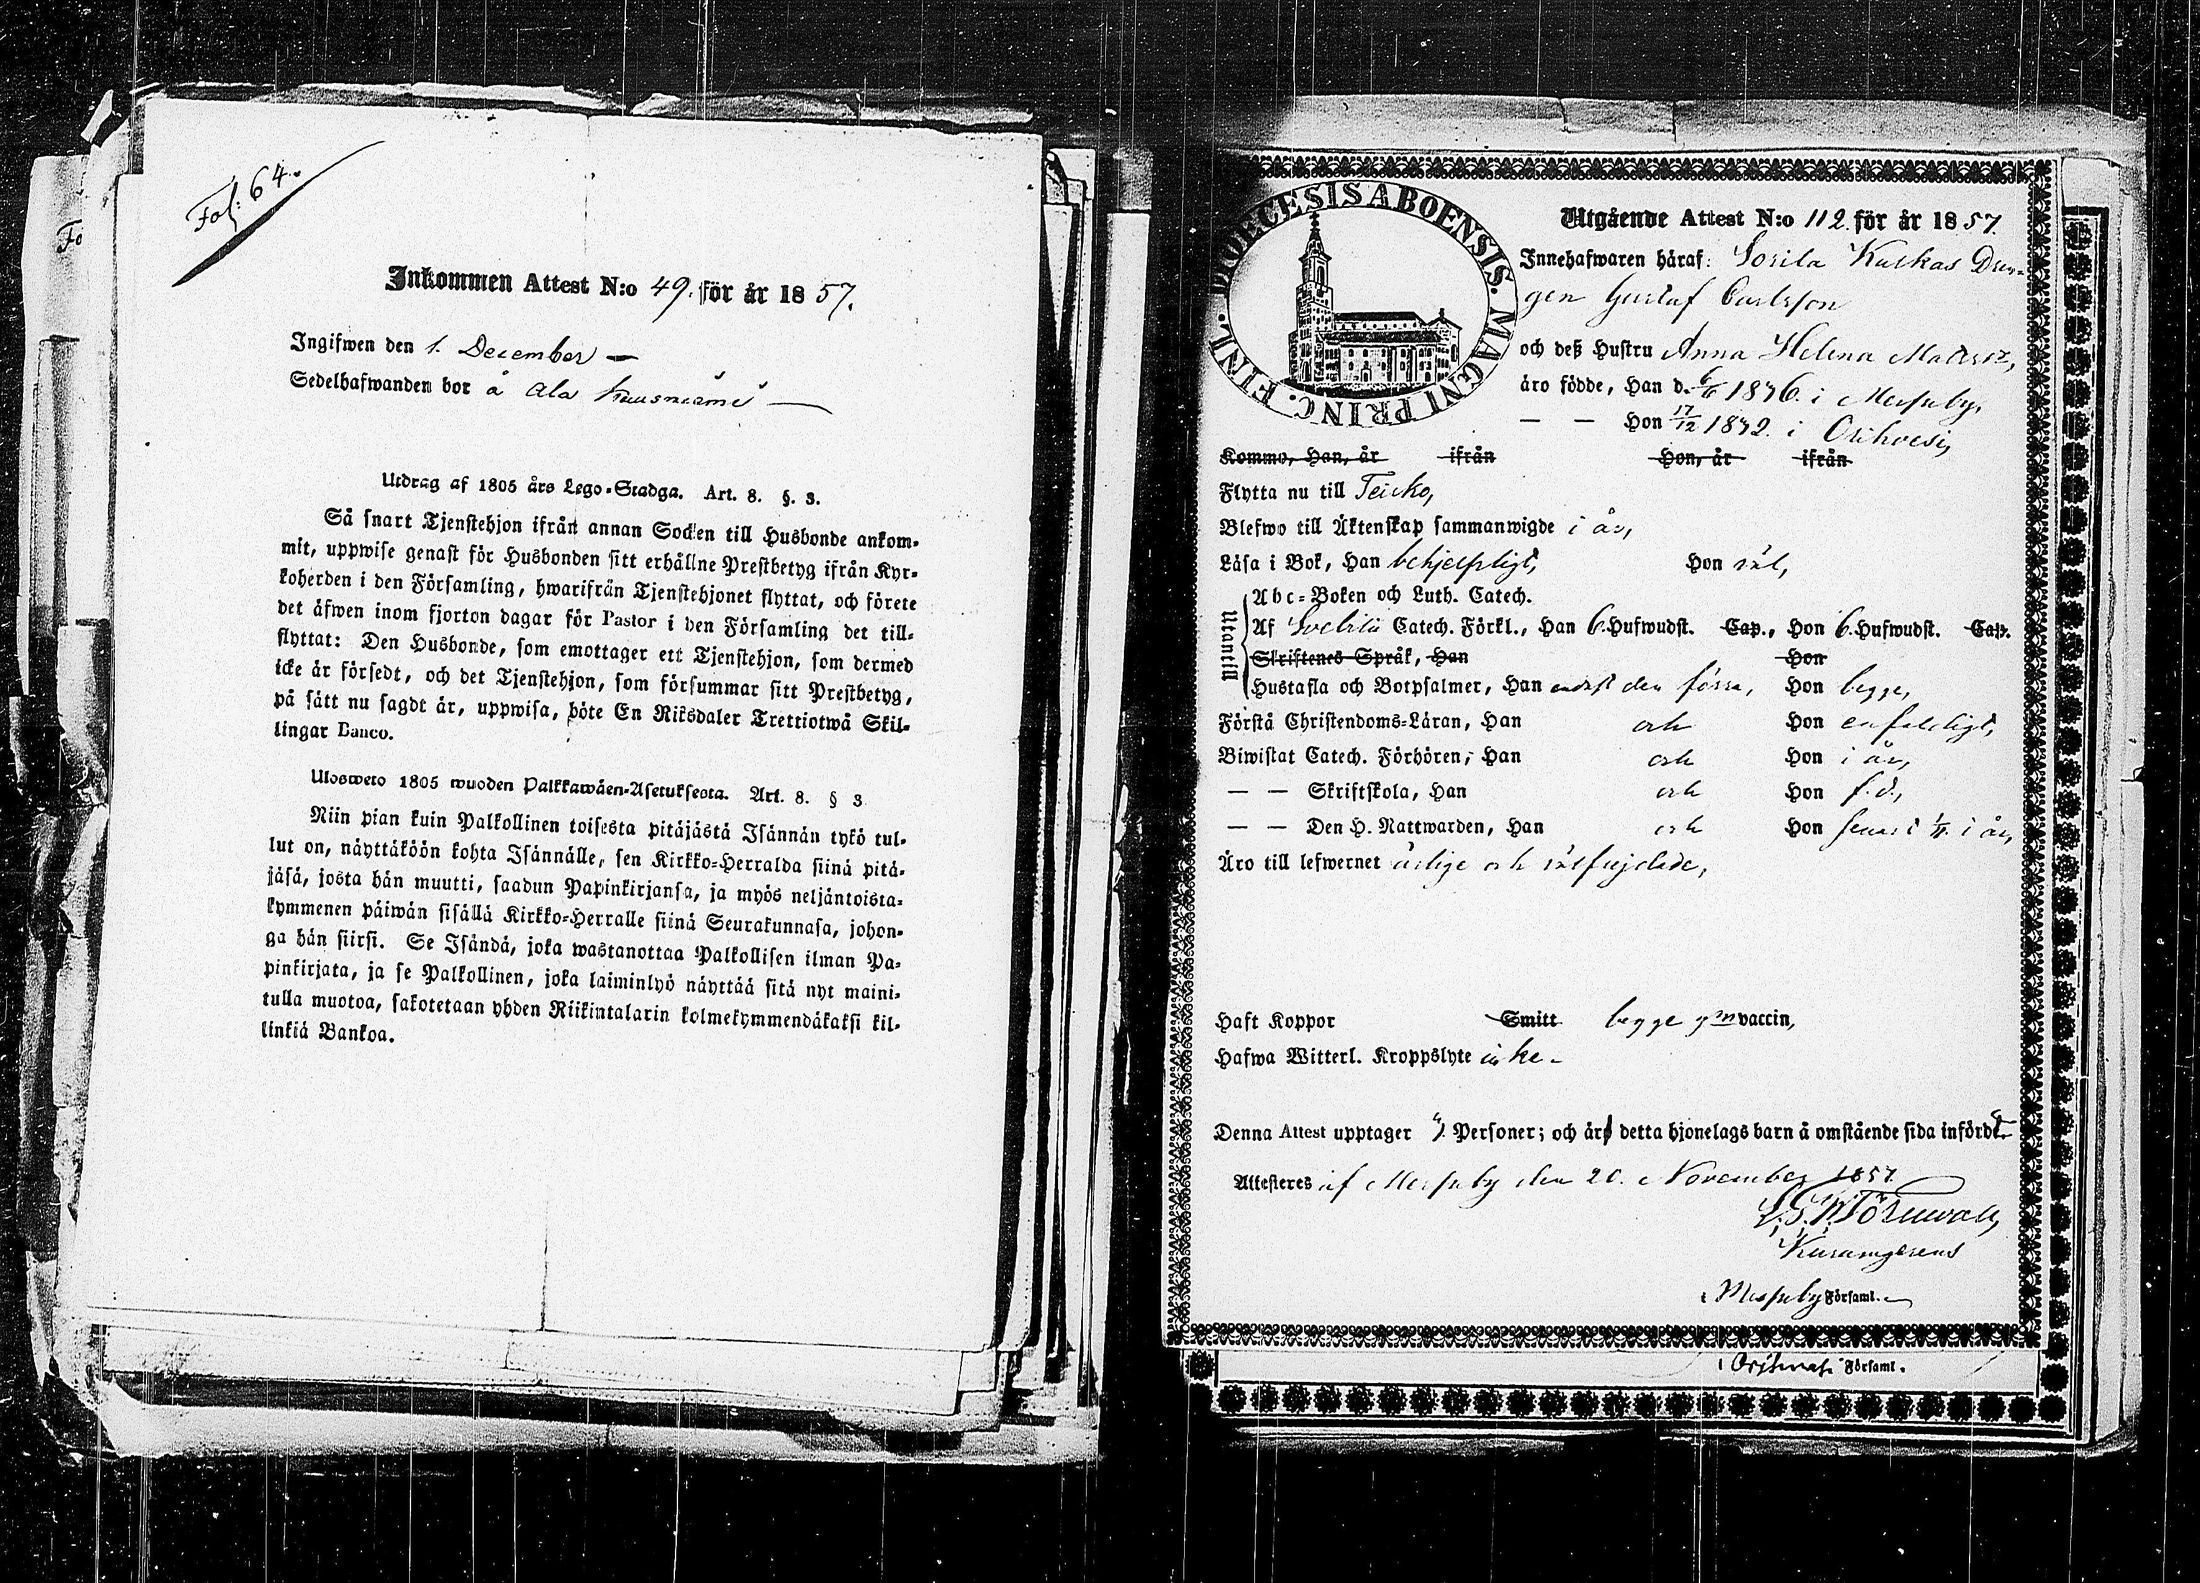 Fol: 64.
Inkommen Attest N:o 49. för år 1857.
Ingifwen den 1. December —
Sedelhafwanden bor å Ala
Utdrag af 1805 års Lego-Stadga. Art. 8. §. 3.
Så snart Tjenstehjon ifrån annan Socken till Husbonde ankom-
mit, uppwise genast för Husbonden sitt erhållne Prestbetyg ifrån Kyr-
koherden i den Församling, hwarifrån Tjenstehjonet flyttat, och förete
det äfwen inom fjorton dagar för Pastor i den Församling det till-
flyttat: Den Husbonde, som emottager ett Tjenstehjon, som dermed
icke är försedt, och det Tjenstehjon, som försummar sitt Prestbetyg,
på sätt nu sagdt är, uppwisa, böte En Riksdaler Trettiotwå Skil-
lingar Banco.
Ulosweto 1805 wuoden Palkkawäen-Asetuksesta. Art. 8. § 3
Niin pian kuin Palkollinen toisesta pitäjästä Isännän tykö tul-
lut on, näyttäköön kohta Isännälle, sen Kirkko-Herralda siinä pitä-
jäsä, josta hän muutti, saadun Papinkirjansa, ja myös neljäntoista-
kymmenen päiwän sisällä Kirkko-Herralle siinä Seurakunnasa, johon-
ga hän siirsi. Se Isändä, joka wastanottaa Palkollisen ilman Pa-
pinkirjata, ja se Palkollinen, joka laiminlyö näyttää sitä nyt maini-
tulla muotoa, sakotetaan yhden Riikintalarin kolmekymmendäkaksi kil-
linkiä Bankoa.
DIOECESIS ABOENSIS. MAGNI PRINC. FINL.
Utgående Attest N:o 112. för år 1857.
Innehafwaren häraf: Sorila Kaskas Drän-
gen Gustaf Carlsson
och deß Hustru Anna Helena Matts dr,
äro födde, Han d. 6/6 1836. i Messuby,
— — Hon 17/12 1832. i Orihvesi,
Kommo, Han, år ifrån Hon, år ifrån
Flytta nu till Teisko,
Blefwo till Äktenskap sammanwigde i år,
Läsa i Bok, Han behjelpligt, Hon väl,
Utantill
Abc-Boken och Luth. Catech.
Af Svebilii Catech. Förkl., Han 6. Hufwudst. Cap., Hon 6. Hufwudst. Cap.
Skriftenes Språk, Han Hon
Hustafla och Botpsalmer, Han endast den förra, Hon begge,
Förstå Christendoms-Läran, Han och Hon enfaldigt,
Biwistat Catech. Förhören, Han och Hon i år,
— — Skriftskola, Han och Hon f. d.,
— — Den H. Nattwarden, Han och Hon senast i år,
Äro till lefwernet ärlige och välfrejdade,
Haft Koppor Smitt begge gm vaccin,
Hafwa Witterl. Kroppslyte icke –
Denna Attest upptager Personer; och är detta hjonelags barn å omstående sida infördt
Attesteres af Messuby den 20. November 1857
Törnwall,
i Messuby Församl.
i Församl.